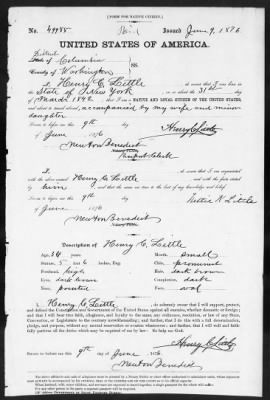 [FORM FOR NATIVE CITIZEN.]
No. 49985 Issued June 9, 1876
UNITED STATES OF AMERICA.
District
State of Columbia
SS.
County of Washington
I, Henry C. Little, do swear that I was born in
State of New York on or about the 31st day
of March 1842, that I am a NATIVE AND LOYAL CITIZEN OF THE UNITED STATES,
and about to travel abroad, accompanied by my wife and minor
daughter
Sworn to before me this 9th day
of June 1876 Henry C. Little
Newton Benedict
I, do swear that I am acquainted
with the above named Henry C. Little and with the facts stated
by him and that the same are true to the best of my knowledge and belief.
Sworn to before me this 9th day
of June 1876
Newton Benedict
Description of Henry C. Little
Age: 34 years Mouth: small
Stature: 5 feet 6 inches, Eng. Chin: prominent
Forehead: high Hair: dark brown
Eyes: dark brown Complexion: dark
Nose: pointed Face: oval
I, Henry C. Little, do solemnly swear that I will support, protect,
and defend the Constitution and Government of the United States against all enemies, whether domestic or foreign;
and that I will bear true faith, allegiance, and loyalty to the same, any ordinance, resolution, or law of any State,
Convention, or Legislature to the contrary notwithstanding; and further, that I do this with a full determination,
pledge, and purpose, without any mental reservation or evasion whatsoever; and further, that I will well and faith-
fully perform all the duties which may be required of me by law: So help me God.
Henry C. Little
Sworn to before me this 9th day of June 1876
Newton Benedict